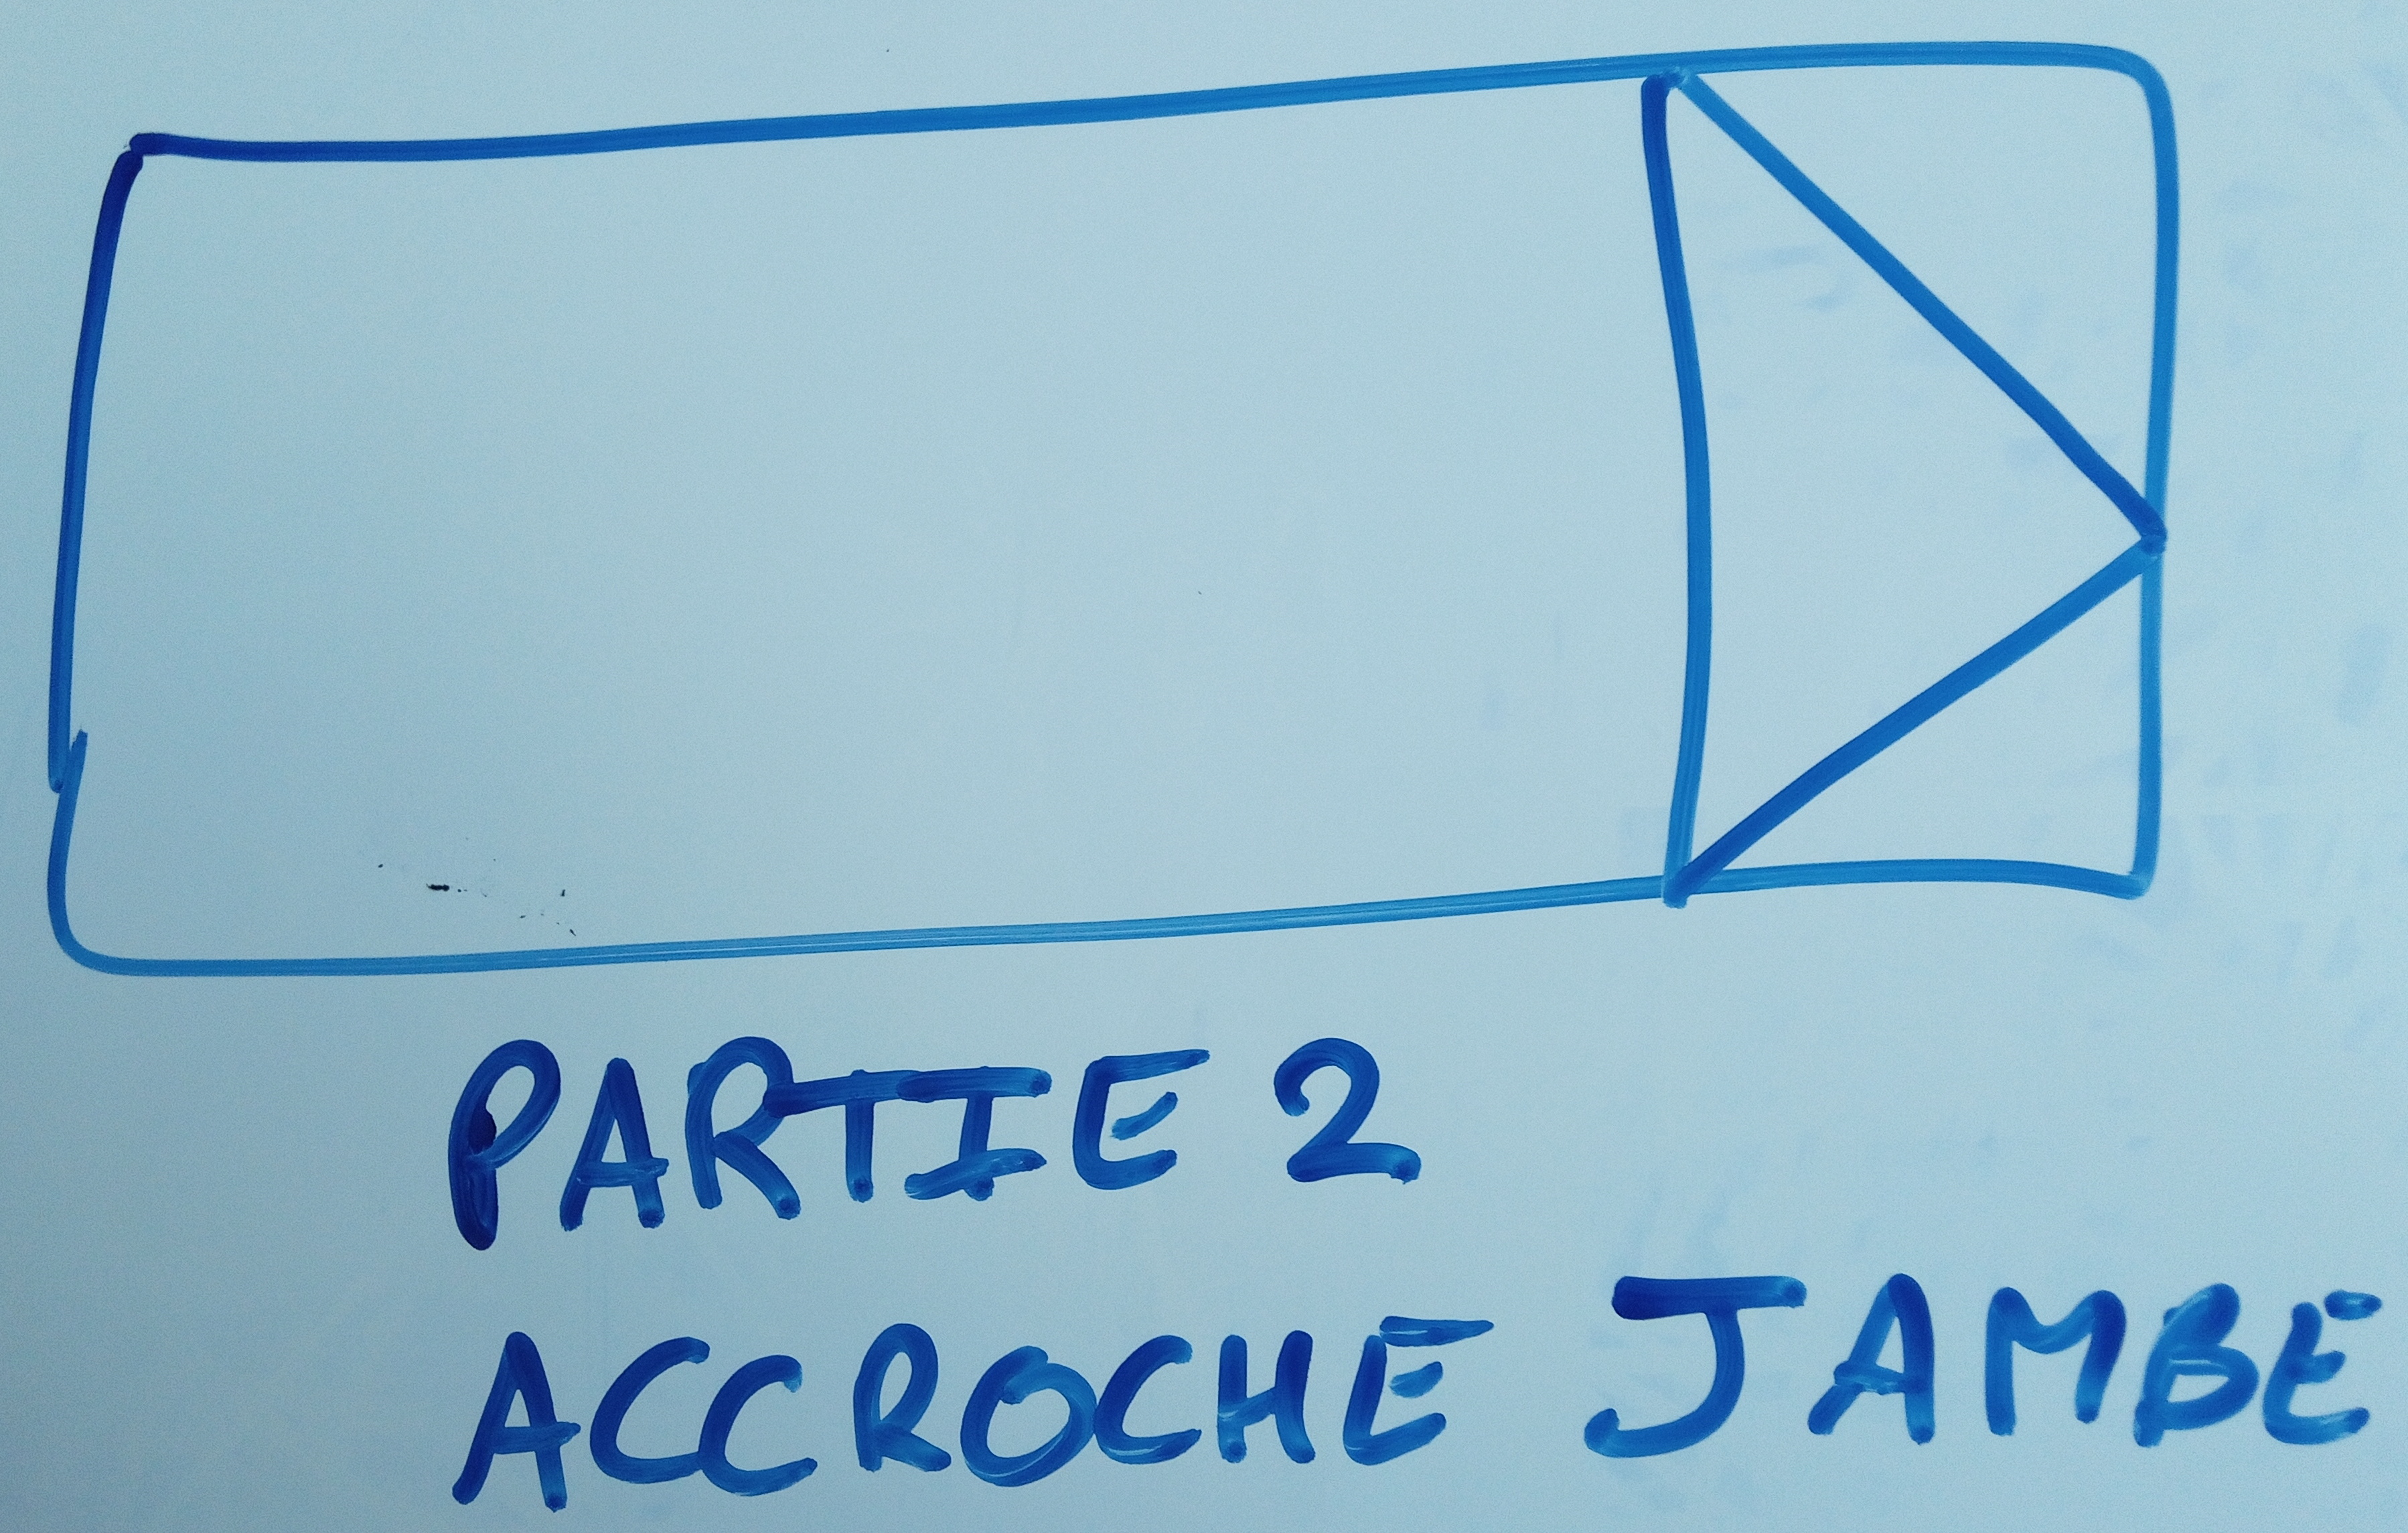 PARTIE 2
ACCROCHE JAMBE